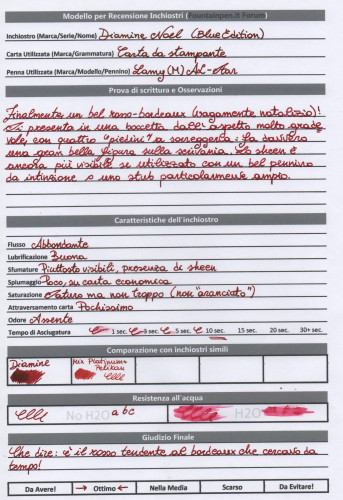 Modello per Recensione Inchiostri (Fountainpen.it Forum)
Inchiostro (Marca/Serie/Nome) Diamine Noel (Blue Edition)
Carta Utilizzata (Marca/Grammatura) Carta da stampante
Penna Utilizzata (Marca/Modello/Pennino) Lamy (M) AL-Star
Prova di scrittura e Osservazioni
Finalmente un bel rosso-bordeaux (vagamente natalizio)!
Si presenta in una boccetta dall'aspetto molto grade
vole, con quattro "piedini" a sorreggerla: fa davvero
una gran bella figura sulla scrivania. Lo sheen è
ancora più visibile se utilizzato con un bel pennino
da intinzione o uno stub particolarmente ampio.
Caratteristiche dell'inchiostro
Flusso Abbondante
Lubrificazione Buona
Sfumature Piuttosto visibili, presenza di sheen
Spiumaggio Poco, su carta economica
Saturazione Saturo ma non troppo (non "aranciato")
Attraversamento carta Pochissimo
Odore Assente
Tempo di Asciugatura 1 sec. 3 sec. 5 sec. 10 sec. 15 sec. 20 sec. 30+ sec.
Comparazione con inchiostri simili
Diamine
Mix Platinum+
Pelikan
Resistenza all'acqua
No H2O abc H2O
Giudizio Finale
Che dire: è il rosso tendente al bordeaux che cercavo da
tempo!
Da Avere! → Ottimo ← Nella Media Scarso Da Evitare!